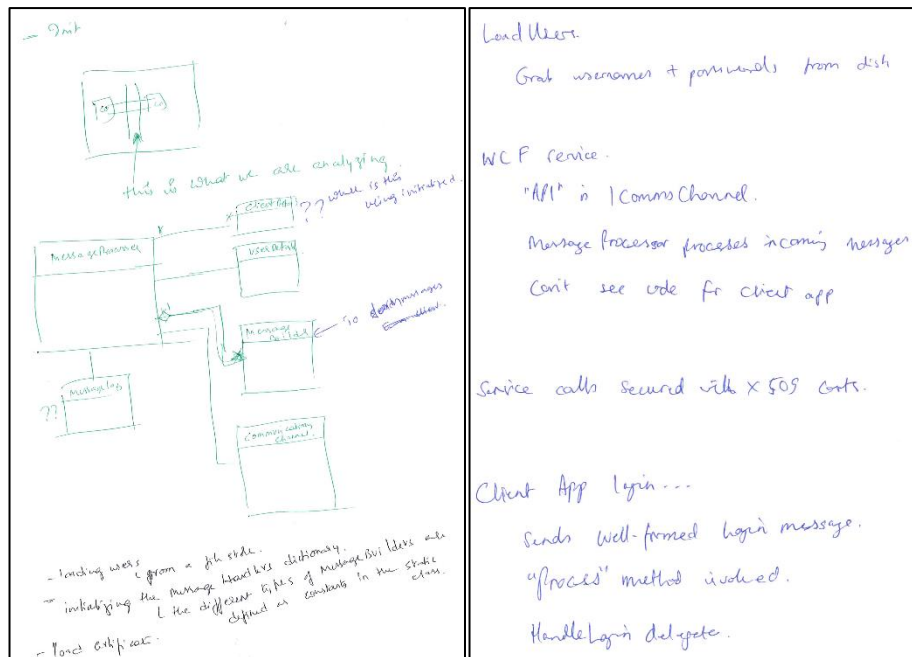 - Init
this is what we are analyzing.
Client App
?? where is this
being initialized.
MessageProcessor
UserDetail
Message
Builder
To
messages
MessageLog
??
Communication
Channel
- loading users from a file store.
- initializing the Message Handlers dictionary.
the different types of MessageBuilders are
defined as constants in the static
class.
- load certificate.
Load Users.
Grab usernames + passwords from disk
WCF service.
"API" is ICommsChannel.
MessageProcessor processes incoming messages
Can't see code for client app
Service calls secured with X509 certs.
Client App login...
Sends well-formed login message.
"Process" method invoked.
HandleLogin delegate.